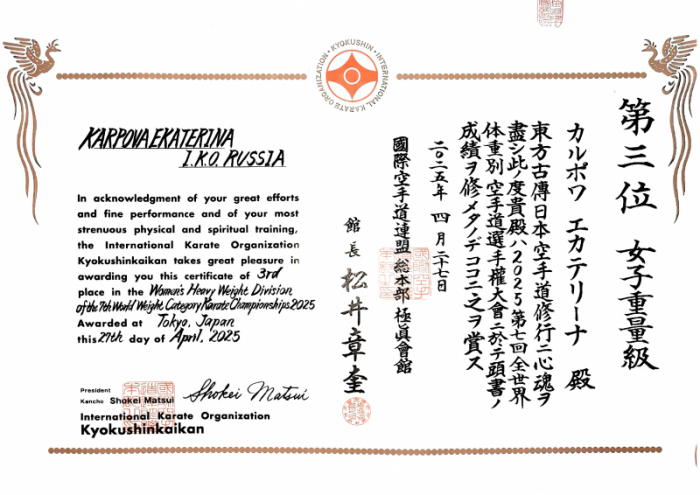 KYOKUSHIN • INTERNATIONAL KARATE ORGANIZATION •
KARPOVA EKATERINA
I.K.O. RUSSIA
In acknowledgment of your great efforts
and fine performance and of your most
strenuous physical and spiritual training,
the International Karate Organization
Kyokushinkaikan takes great pleasure in
awarding you this certificate of 3rd
place in the Women's Heavy Weight Division
of the 7th World Weight Category Karate Championships 2025
Awarded at Tokyo, Japan
this 27th day of April, 2025
President
Kancho Shokei Matsui
Shokei Matsui
International Karate Organization
Kyokushinkaikan
第三位 女子重量級
カルポワ エカテリーナ 殿
東方古傳日本空手道修行ニ心魂ヲ
盡シ此ノ度貴殿ハ2025第七回全世界
体重別空手道選手權大會ニ於テ頭書ノ
成績ヲ修メタノデココニ之ヲ賞ス
二〇二五年 四月二十七日
國際空手道連盟 総本部 極眞會館
館長 松井章奎